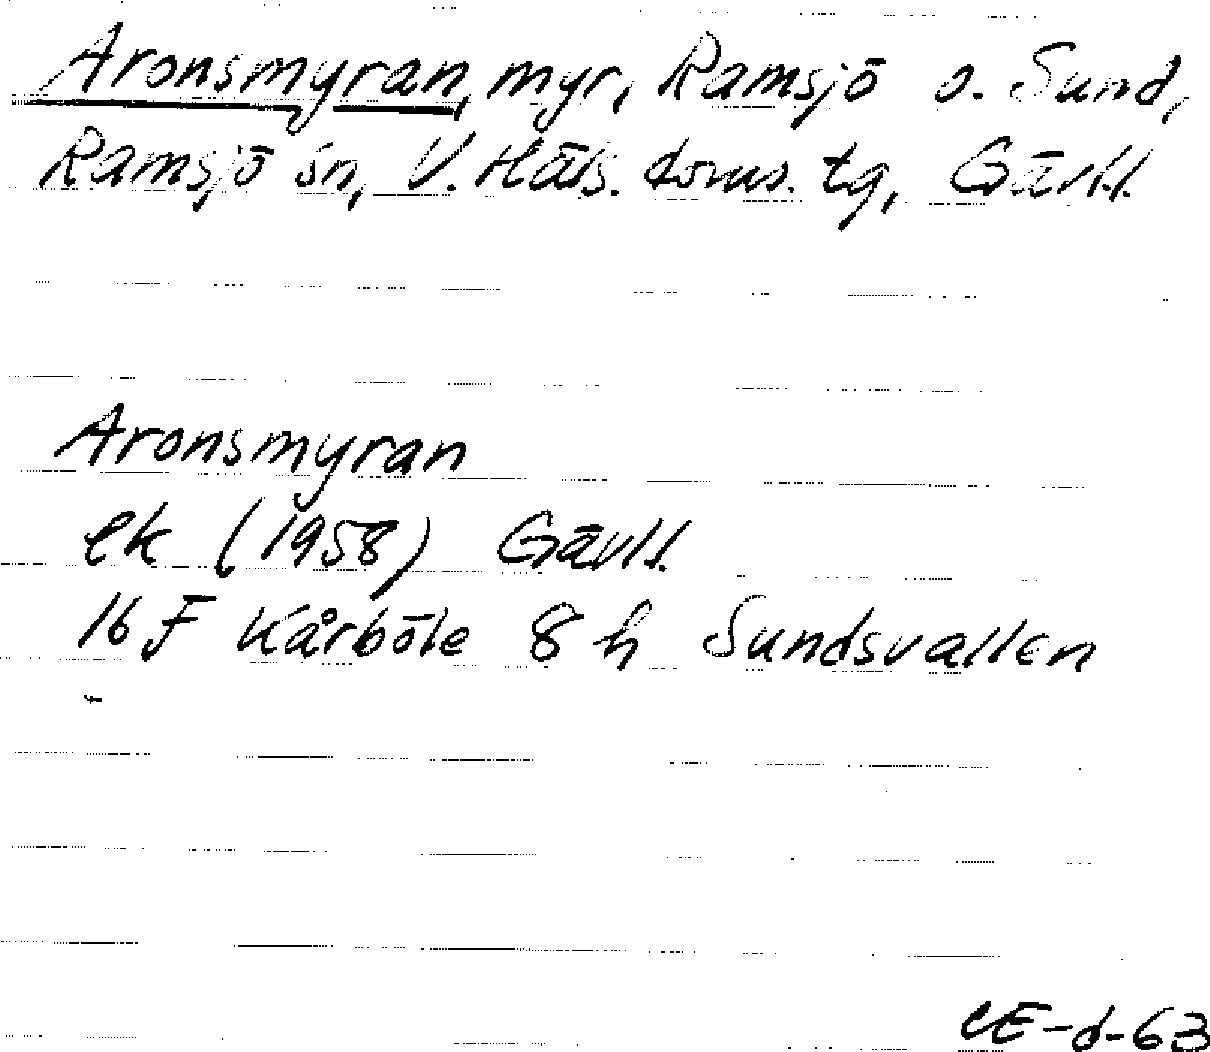 Aronsmyran, myr, Ramsjö o. Sund,
Ramsjö sn, V. Häls. doms. tg, Gävl.l.
Aronsmyran
ek (1958) Gävl.l.
16 F Kårböle 8 h Sundsvallen
CE-d-63